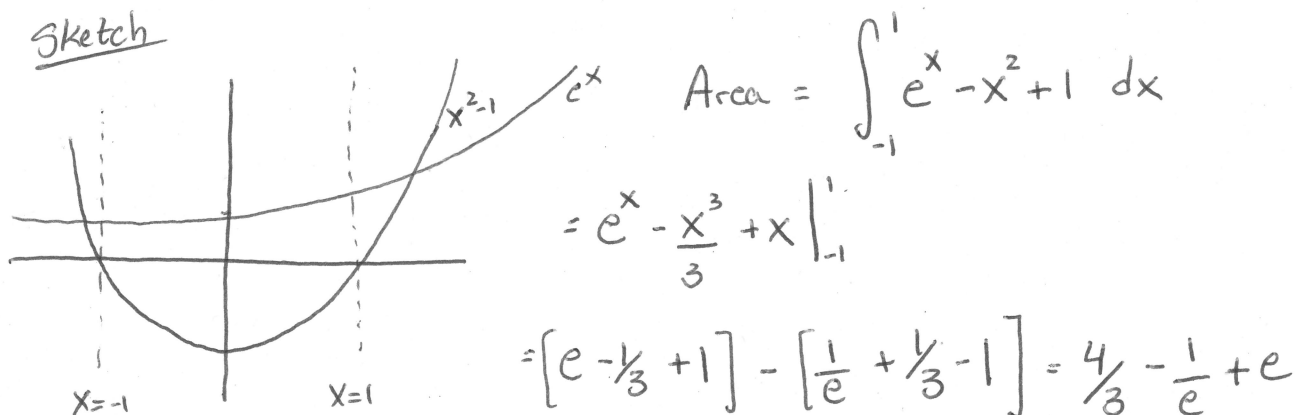 Sketch
x²-1
eˣ
x=-1
x=1
Area = ∫₋₁¹ eˣ -x²+1 dx
= eˣ - x³/3 +x |₋₁¹
=[e -1/3 +1] - [1/e +1/3 -1] = 4/3 - 1/e +e